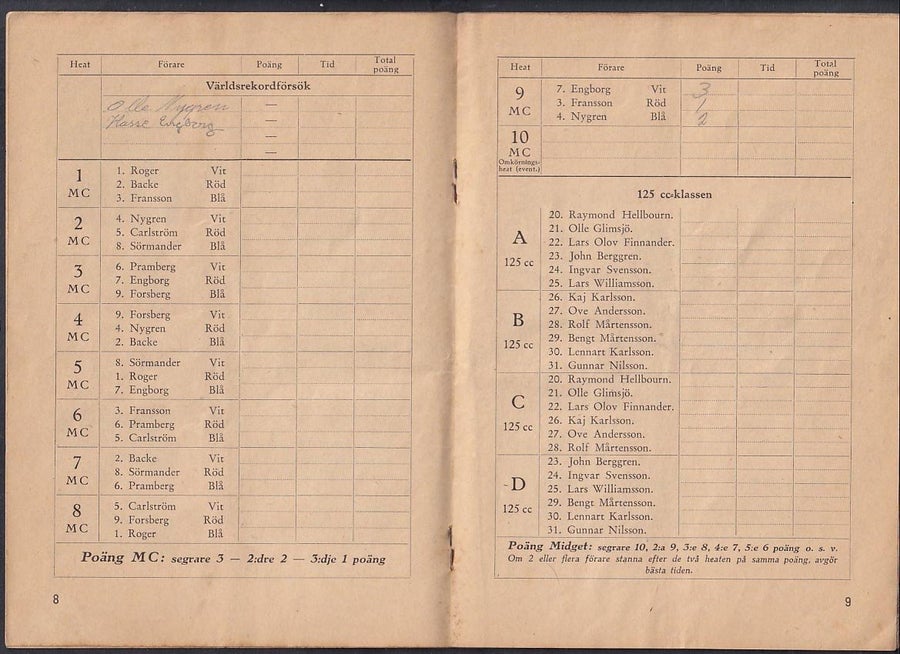 Heat Förare Poäng Tid Total poäng
Världsrekordförsök
Olle Nygren —
Hasse Engborg —
—
—
1 MC
1. Roger Vit
2. Backe Röd
3. Fransson Blå
2 MC
4. Nygren Vit
5. Carlström Röd
8. Sörmander Blå
3 MC
6. Pramberg Vit
7. Engborg Röd
9. Forsberg Blå
4 MC
9. Forsberg Vit
4. Nygren Röd
2. Backe Blå
5 MC
8. Sörmander Vit
1. Roger Röd
7. Engborg Blå
6 MC
3. Fransson Vit
6. Pramberg Röd
5. Carlström Blå
7 MC
2. Backe Vit
8. Sörmander Röd
6. Pramberg Blå
8 MC
5. Carlström Vit
9. Forsberg Röd
1. Roger Blå
Poäng MC: segrare 3 — 2:dre 2 — 3:dje 1 poäng
8
Heat Förare Poäng Tid Total poäng
9 MC
7. Engborg Vit 3
3. Fransson Röd 1
4. Nygren Blå 2
10
MC
Omkörnings-
heat (event.)
125 cc-klassen
A 125 cc
20. Raymond Hellbourn.
21. Olle Glimsjö.
22. Lars Olov Finnander.
23. John Berggren.
24. Ingvar Svensson.
25. Lars Williamsson.
B 125 cc
26. Kaj Karlsson.
27. Ove Andersson.
28. Rolf Mårtensson.
29. Bengt Mårtensson.
30. Lennart Karlsson.
31. Gunnar Nilsson.
C 125 cc
20. Raymond Hellbourn.
21. Olle Glimsjö.
22. Lars Olov Finnander.
26. Kaj Karlsson.
27. Ove Andersson.
28. Rolf Mårtensson.
D 125 cc
23. John Berggren.
24. Ingvar Svensson.
25. Lars Williamsson.
29. Bengt Mårtensson.
30. Lennart Karlsson.
31. Gunnar Nilsson.
Poäng Midget: segrare 10, 2:a 9, 3:e 8, 4:e 7, 5:e 6 poäng o. s. v.
Om 2 eller flera förare stanna efter de två heaten på samma poäng, avgör
bästa tiden.
9